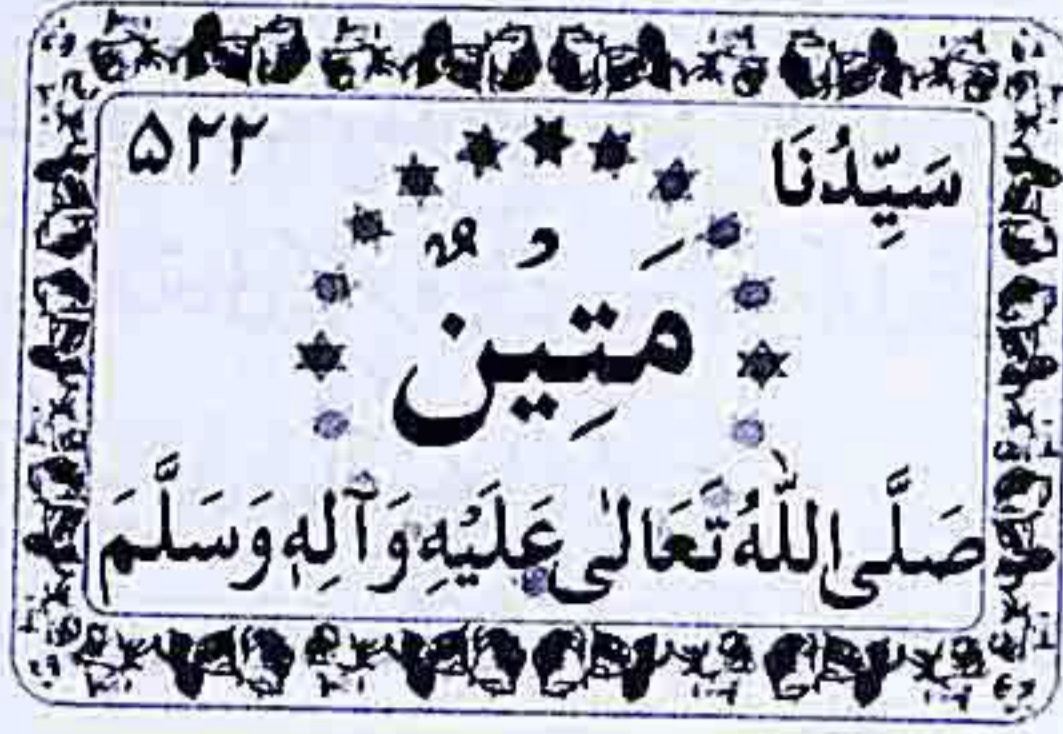 سَيِّدُنَا ۵۲۲
مَتِيْنٌ
صَلَّى اللّٰهُ تَعَالٰى عَلَيْهِ وَآلِهٖ وَسَلَّمَ